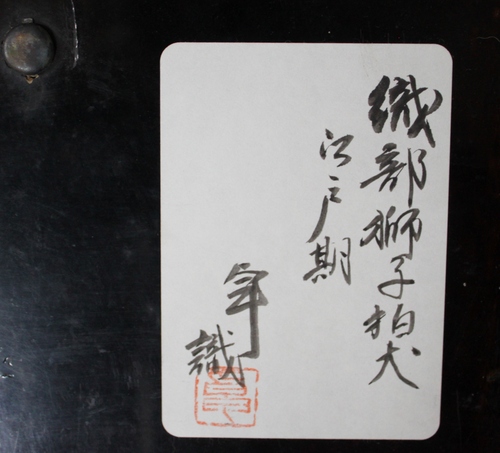 織部獅子狛犬
江戸期
識